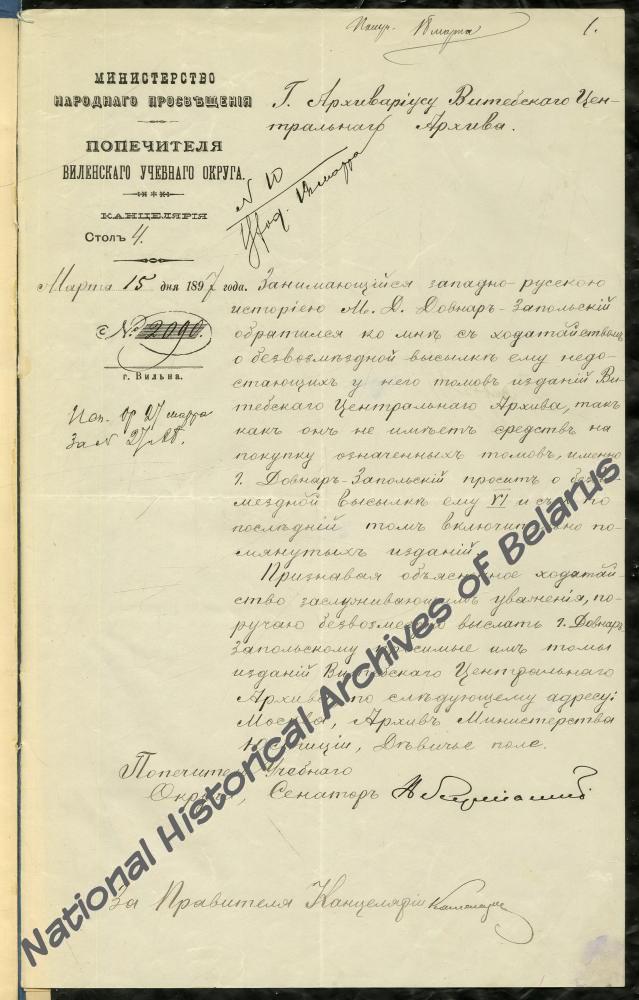 Получ. 18 марта
1.
МИНИСТЕРСТВО
НАРОДНАГО ПРОСВѢЩЕНІЯ
ПОПЕЧИТЕЛЯ
ВИЛЕНСКАГО УЧЕБНАГО ОКРУГА.
КАНЦЕЛЯРІЯ
Столъ 4.
Марта 15 дня 1897 года.
№ 2090.
г. Вильна.
Г. Архиваріусу Витебскаго Цен-
тральнаго Архива.
№ 10
марта
27 марта
За №
Занимающійся западно-русскою
исторіею М. Д. Довнаръ-Запольскій
обратился ко мнѣ съ ходатайствомъ
о безвозмѣздной высылкѣ ему недо-
стающихъ у него томовъ изданій Ви-
тебскаго Центральнаго Архива, такъ
какъ онъ не имѣетъ средствъ на
покупку означенныхъ томовъ, именно
г. Довнаръ-Запольскій проситъ о безвоз-
мездной высылкѣ ему VI и съ по
послѣдній томъ включительно по-
мянутыхъ изданій.
Признавая объясненное ходатай-
ство заслуживающимъ уваженія, по-
ручаю безвозмездно выслать г. Довнаръ-
Запольскому просимые имъ томы
изданій Витебскаго Центральнаго
Архива по слѣдующему адресу:
Москва, Архивъ Министерства
Юстиціи, Дѣвичье поле.
Попечитель Учебнаго
Округа, Сенаторъ
За Правителя Канцеляріи
National Historical Archives of Belarus